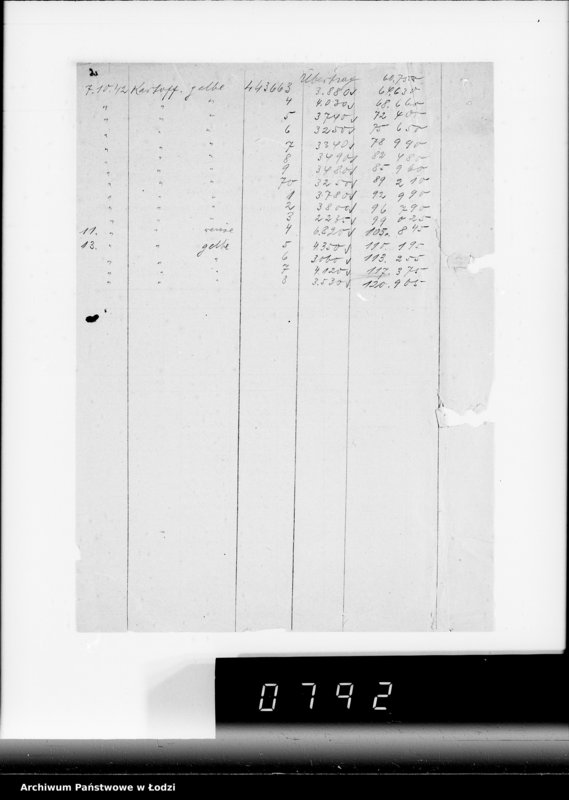 Übertrag 60,750
7.10.42 Kartoff. gelbe 443663 3.880 64.630
" " " " 4 4.030 68.660
" " " " 5 3740 72 400
" " " " 6 3250 75 650
" " " " 7 3340 78 990
" " " " 8 3490 82 480
" " " " 9 3480 85 960
" " " " 70 3250 89 210
" " " " 1 3780 92 990
" " " " 2 3800 96 790
" " " " 3 2235 99 025
11. " " 4 6820 105. 845
13. " " gelbe 5 4350 110. 195
" " " " 6 3060 113. 255
" " " " 7 4120 117. 375
" " " " 8 3530 120. 905
0792
Archiwum Państwowe w Łodzi